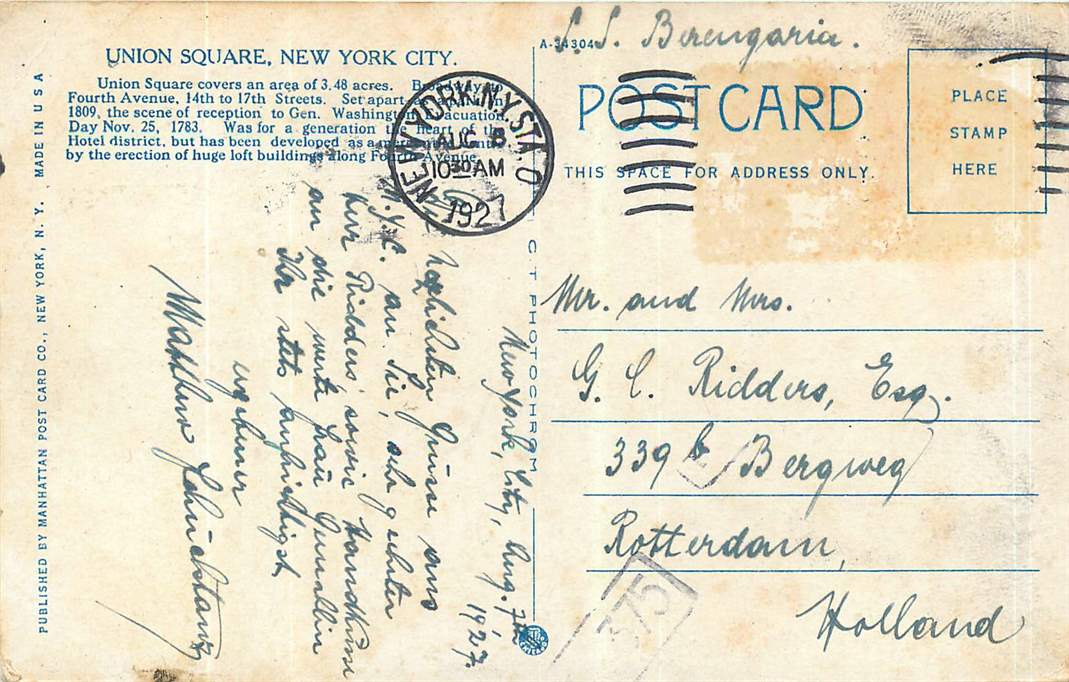 S. S. Berengaria.
A-34304
UNION SQUARE, NEW YORK CITY.
Union Square covers an area of 3.48 acres. Broadway to
Fourth Avenue, 14th to 17th Streets. Set apart as a park in
1809, the scene of reception to Gen. Washington Evacuation
Day Nov. 25, 1783. Was for a generation the heart of the
Hotel district, but has been developed as a mercantile center
by the erection of huge loft buildings along Fourth Avenue.
NEW YORK, N.Y. STA. O
AUG 8
10 30 AM
1927
POST CARD
THIS SPACE FOR ADDRESS ONLY.
PLACE
STAMP
HERE
MADE IN U S A
PUBLISHED BY MANHATTAN POST CARD CO., NEW YORK, N. Y.
C T PHOTOCHROM
New York, City, Aug. 7th
1927.
herzlichsten Grüsse aus
N.Y.C. an Sie, sehr geehrter
Herr Ridders sowie Handküsse
an die werte Frau Gemahlin
Ihr stets aufrichtigst
ergebener
Matthew
Mr. and Mrs.
G. C. Ridders, Esq.
339 b Bergweg
Rotterdam,
Holland
375